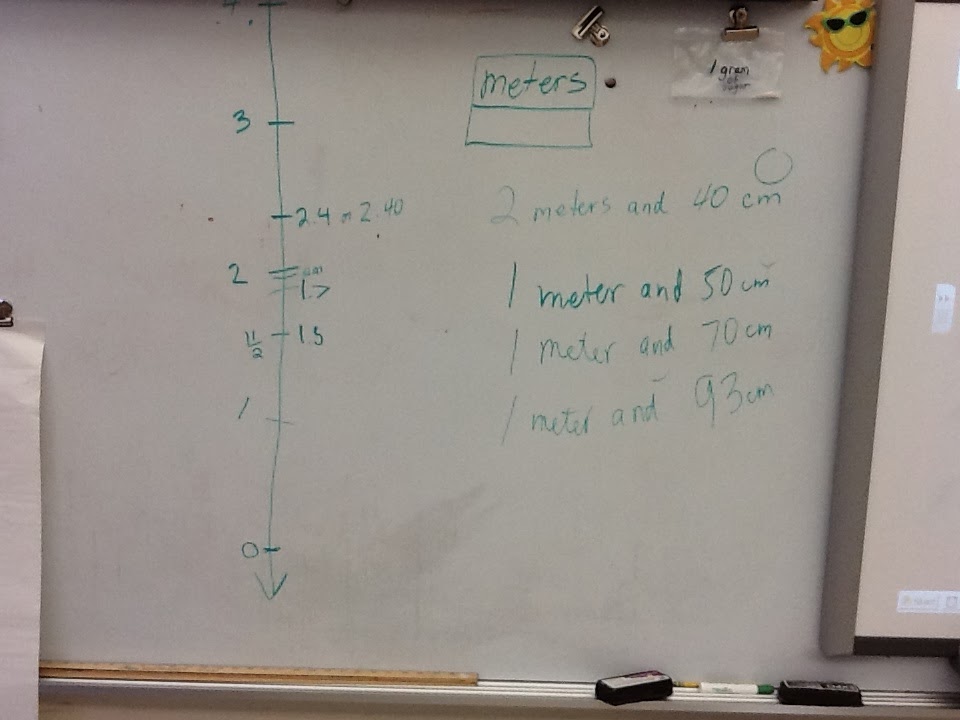 4
meters
1 gram
of
sugar
3
2.4 or 2.40
2 meters and 40 cm
2
1.7
1 meter and 50 cm
1 1/2
1.5
1 meter and 70 cm
1
1 meter and 93 cm
0